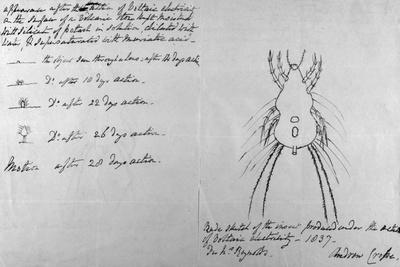 appearance after the action of Voltaic electricity
on the surface of a volcanic stone kept moistened
with silicate of potash in solution diluted with
water & supersaturated with muriatic acid —
the object seen through a lens after 14 days act.
Do. after 18 days action.
Do. after 22 days action.
Do. after 26 days action.
Motion after 28 days action.
Rude sketch of the insect produced under the action
of Voltaic electricity — 1837.
for Mr. Reynolds. Andrew Crosse.